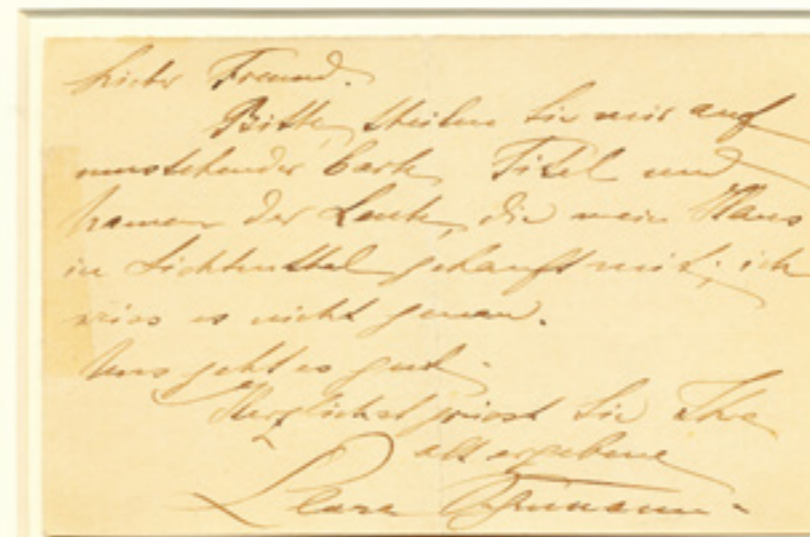 Lieber Freund.
Bitte, theilen Sie mir auf
umstehender Carte, Titel und
Namen der Leute, die mein Haus
in Lichtenthal gekauft mit; ich
weiss es nicht genau.
Uns geht es gut.
Herzlichst grüsst Sie Ihre
altergebene
Clara Schumann.